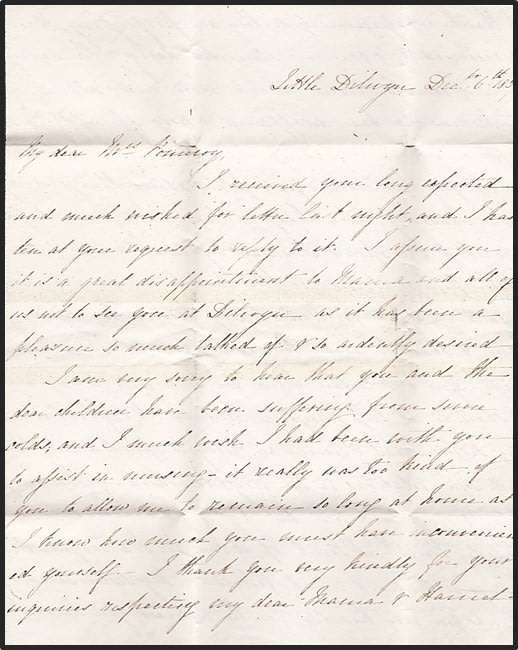 Little Dilwyn Decbr 6th 185
My dear Mrs Pomeroy
I received your long expected
and much wished for letter last night, and I has
ten at your request to reply to it. I assure you
it is a great disappointment to Mama and all of
us not to see you at Dilwyn as it has been a
pleasure so much talked of & so ardently desired
I am very sorry to hear that you and the
dear children have been suffering from severe
colds, and I much wish I had been with you
to assist in nursing - it really was too kind of
you to allow me to remain so long at home as
I know how much you must have inconvenienc
ed yourself. I thank you very kindly for your
inquiries respecting my dear Mama &